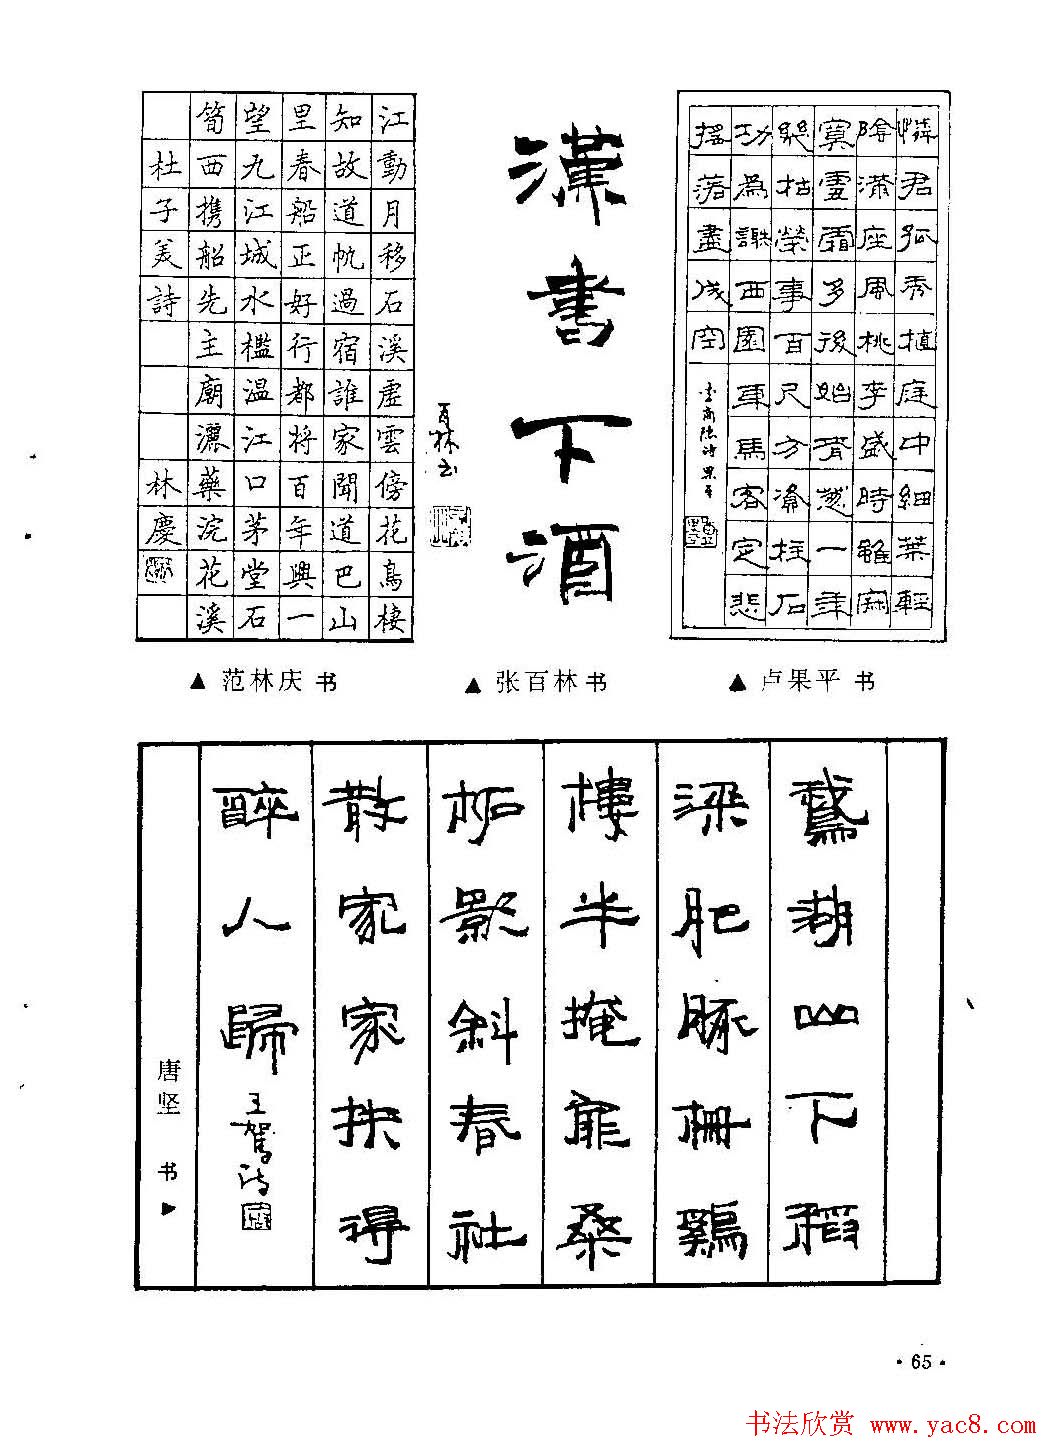 憐君孤秀植庭中細葉輕
陰滿座風桃李盛時雖寂
寞雪霜多後始青葱一年
幾枯榮事百尺方資柱石
功為謝西園車馬客定悲
搖落盡成空
李商隱詩果平
漢書下酒
百林书
江動月移石溪虛雲傍花鳥棲
知故道帆過宿誰家聞道巴山
里春船正好行都将百年興一
望九江城水檻温江口茅堂石
筍西携船先主廟灑藥浣花溪
杜子美詩 林慶
▲范林庆 书
▲张百林 书
▲卢果平 书
鵞湖山下稻
梁肥豚柵鷄
棲半掩扉桑
柘影斜春社
散家家扶得
醉人歸
王駕诗
唐坚 书▶
·65·
书法欣赏 www.yac8.com